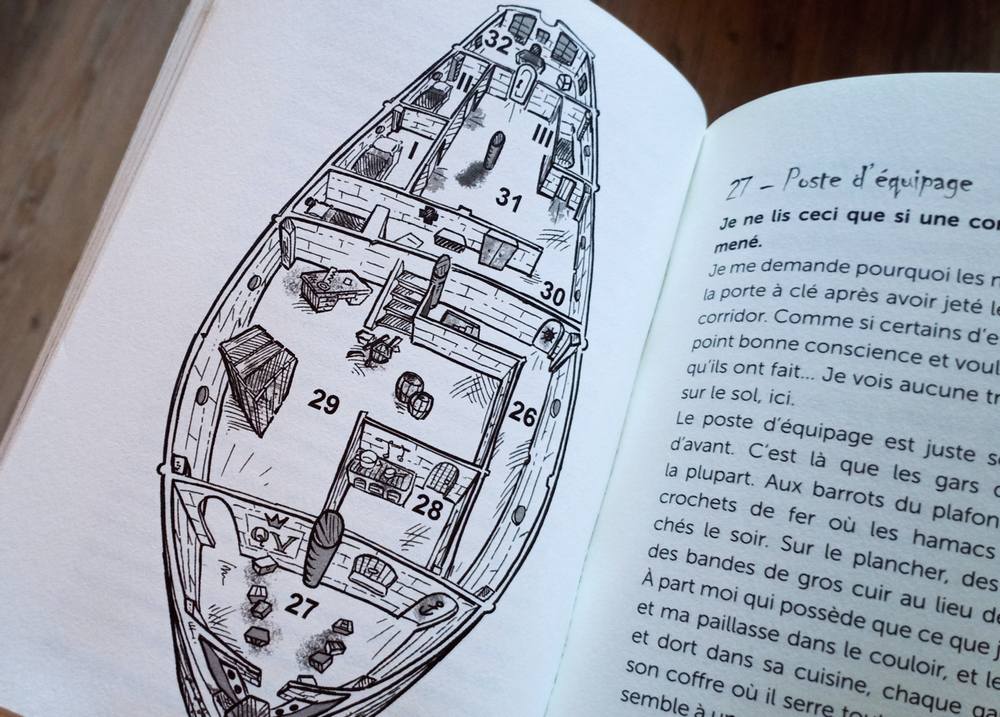 32
II
III
I
31
30
29
26
28
QV
27
27 - Poste d'équipage
Je ne lis ceci que si une
mené.
Je me demande pourquoi les
la porte à clé après avoir jeté
corridor. Comme si certains
point bonne conscience et
qu'ils ont fait... Je vois aucune
sur le sol, ici.
Le poste d'équipage est juste
d'avant. C'est là que les gars
la plupart. Aux barrots du
crochets de fer où les hamacs
chés le soir. Sur le plancher, des
des bandes de gros cuir au lieu
À part moi qui possède que ce que
et ma paillasse dans le couloir, et
et dort dans sa cuisine, chaque
son coffre où il serre
semble à